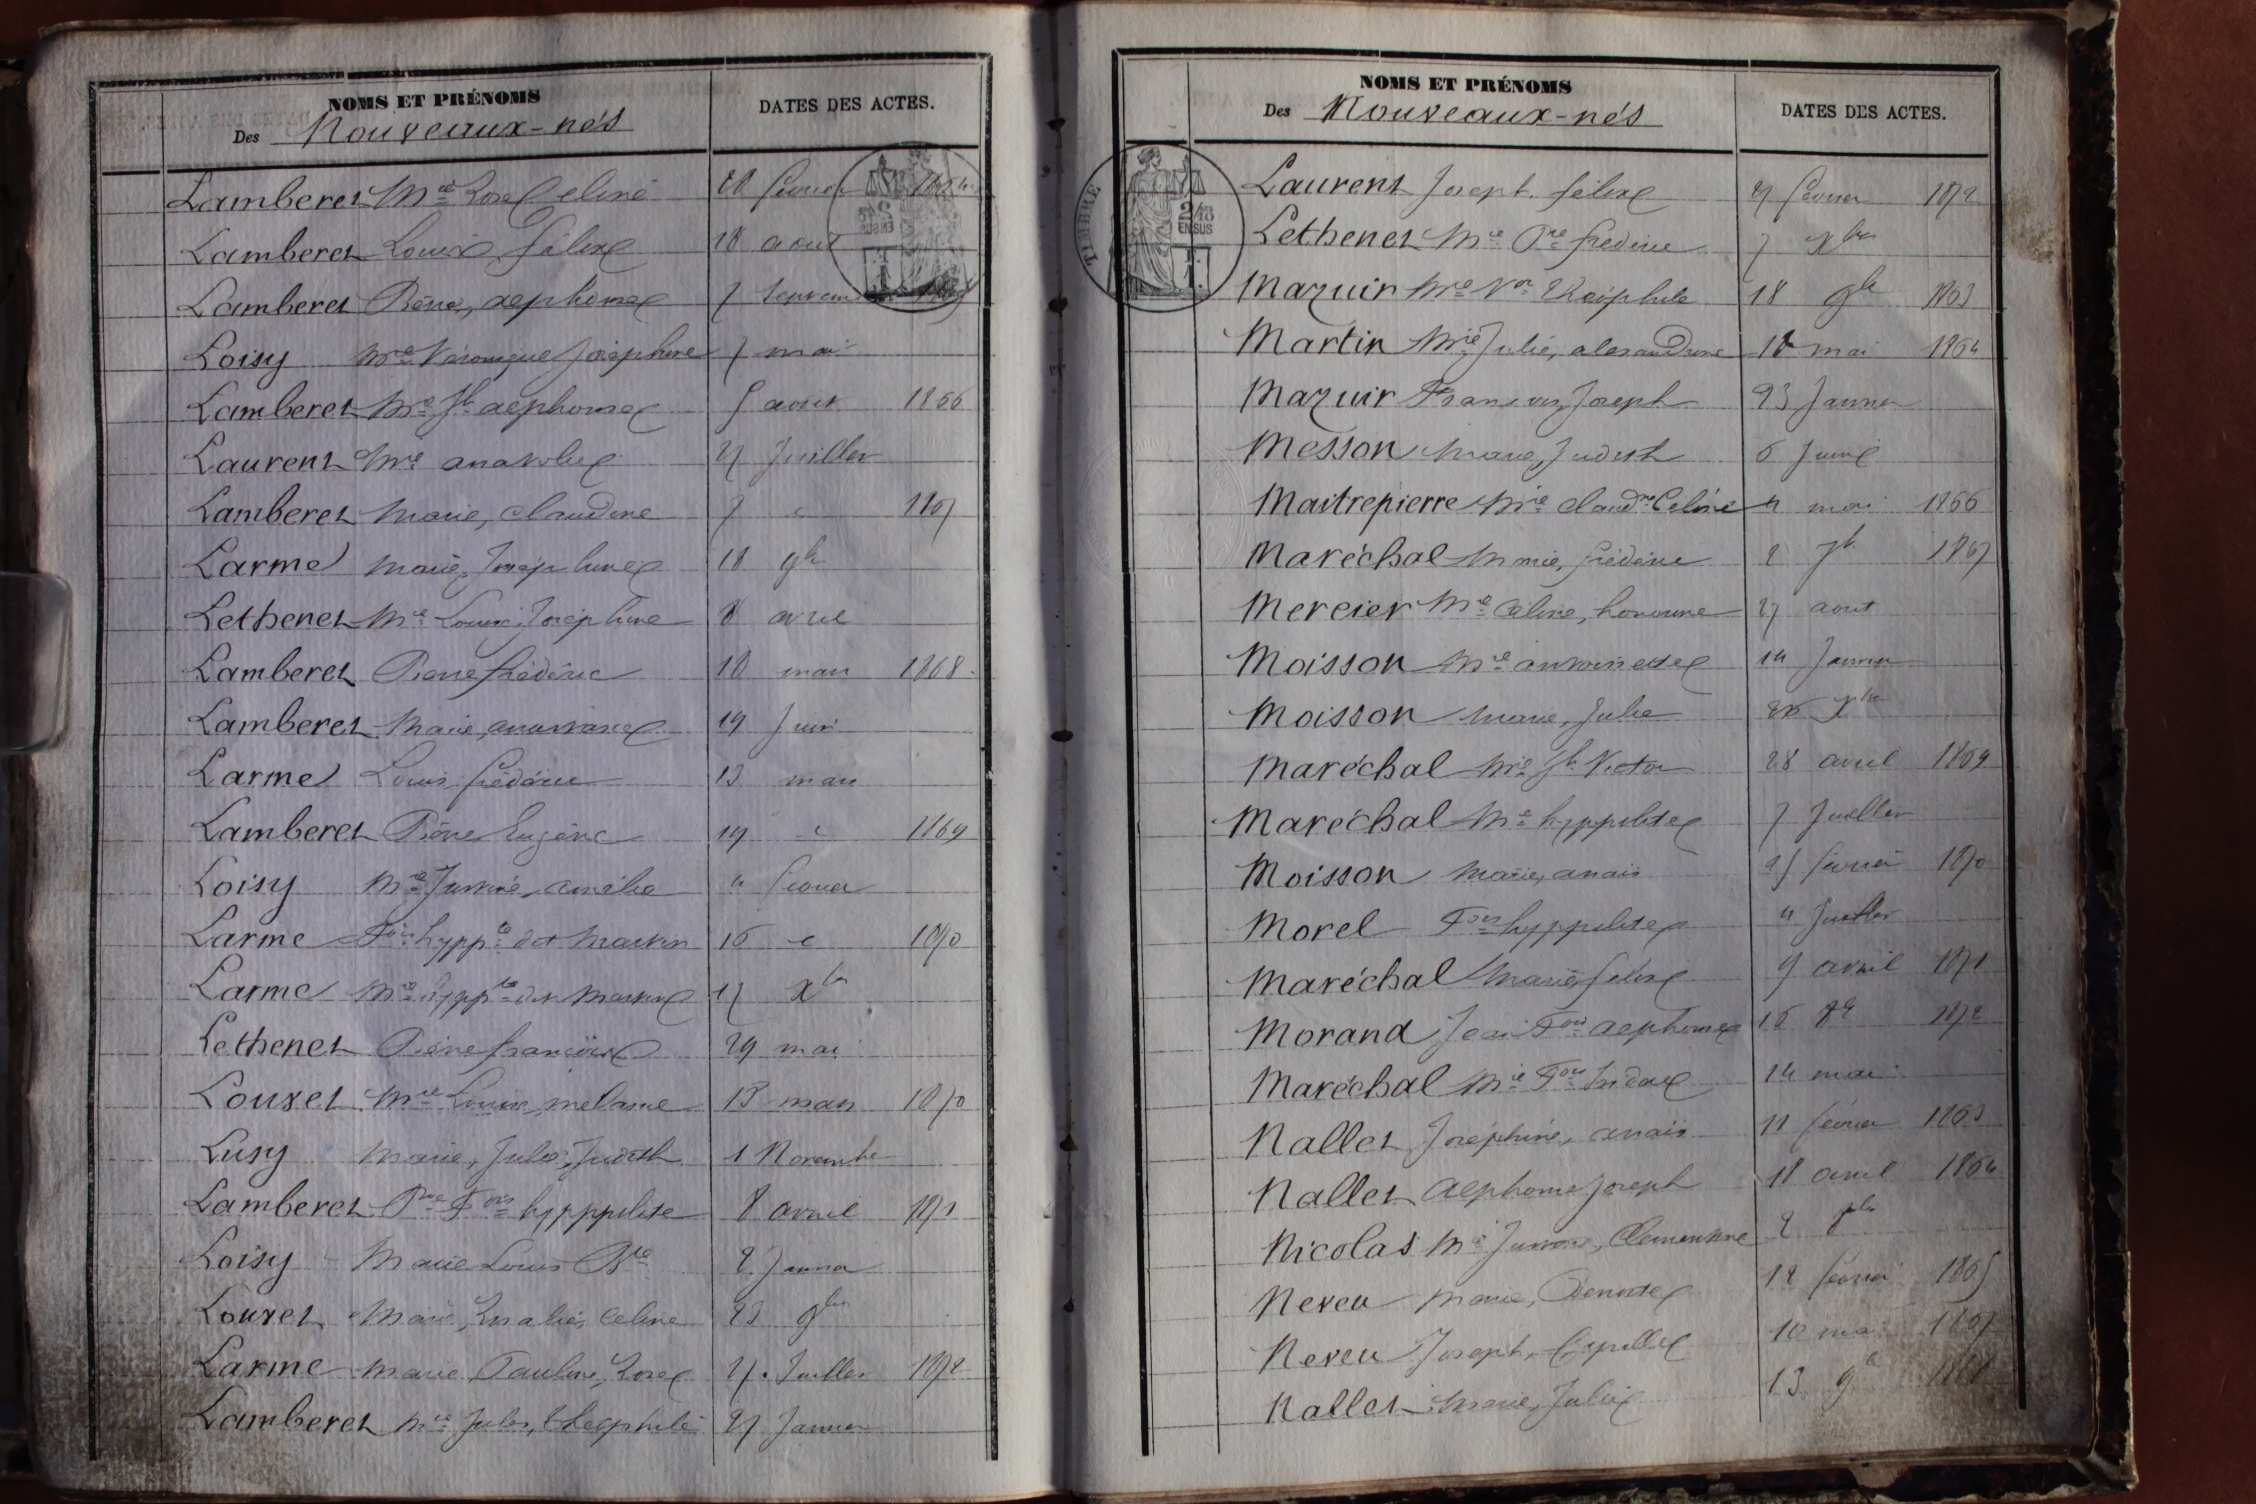 NOMS ET PRÉNOMS
Des Nouveaux-nés
DATES DES ACTES.
Lamberet Mie Rose Celine 20 février
Lamberet Louis Félix 18 aout
Lamberet Pierre, alphonse 7 Septem
Loisy Mie Véronique Joséphine 7 mai
Lamberet Mie Jh alphonse 5 aout 1866
Laurent Mie anatolie 27 Juillet
Lamberet Marie, Claudine 7 " 1867
Larme Marie, Joséphine 18 9bre
Lethenet Mie Louise Joséphine 8 avril
Lamberet Pierre frédéric 10 mars 1868
Lamberet Marie, 19 Juin
Larme Louis frédéric 13 mars
Lamberet Pierre Eugène 19 " 1869
Loisy Mie Justine, amélie 4 février
Larme Fois hyppte dit Martin 16 " 1870
Larme Mie hyppte dit Martin 17 Xbre
Lethenet Pierre françois 29 mai
Louvet Mie Louise, mélanie 13 mars 1870
Lusy Marie, Julie, Judith 1 Novembre
Lamberet Pre Fois hypppolite 8 avril 1871
Loisy Marie Louis Bte 2 Janvier
Louvet Marie, Celine 23 9bre
Larme Marie Pauline, Rose 27 Juillet 1872
Lamberet Mie Jules, théophile 27 Janvier
TIMBRE
NOMS ET PRÉNOMS
Des Nouveaux-nés
DATES DES ACTES.
Laurent Joseph félix 27 février 1872
Lethenet Mie Pre frédéric 7 Xbre
Mazuir Mie Vor Théophile 18 9bre 1863
Martin Mie Julie, alexandrine 18 mai 1864
Mazuir François Joseph 23 Janvier
Messon Marie, Judith 6 Juin
Maitrepierre Mie Claudne Celine 4 mai 1866
Maréchal Marie, frédéric 2 7bre 1867
Mercier Mie Céline, honorine 27 aout
Moisson Mie antoinette 14 Janvier
Moisson Marie, Julie 26 Xbre
Maréchal Mie Jh Victor 28 avril 1869
Maréchal Mie hyppolite 7 Juillet
Moisson Marie, anais 25 février 1870
Morel Fois hyppolite 4 Juillet
Maréchal Marie félix 9 avril 1871
Morand Jean Fois alphonse 16 1872
Maréchal Mie Fois 14 mai
Nallet Joséphine, anais 11 février 1863
Nallet alphonse Joseph 18 avril 1864
Nicolas Mie Justine, Clementine 2 7bre
Neveu Marie, Benoite 12 février 1865
Neveu Joseph, 10 mai 1867
Nallet Marie, Julie 13 9bre 1868